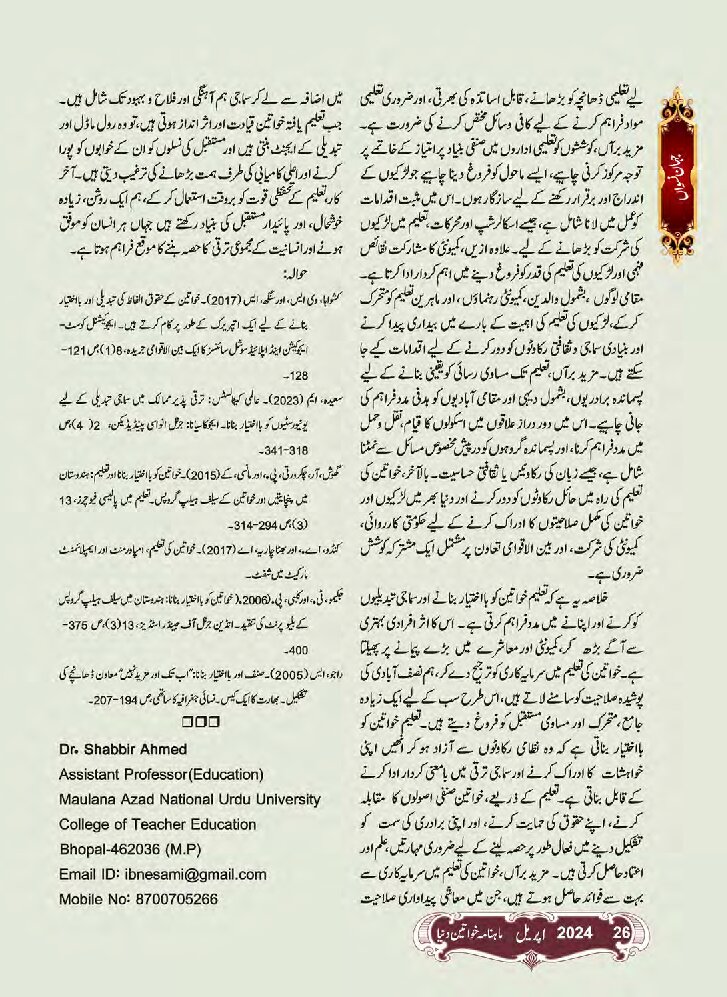 جہان نسواں
لیے تعلیمی ڈھانچہ کو بڑھانے، قابل اساتذہ کی بھرتی، اور ضروری تعلیمی
مواد فراہم کرنے کے لیے کافی وسائل مختص کرنے کی ضرورت ہے۔
مزید برآں، کوششوں کو تعلیمی اداروں میں صنفی بنیاد پر امتیاز کے خاتمے پر
توجہ مرکوز کرنی چاہیے، ایسے ماحول کو فروغ دینا چاہیے جو لڑکیوں کے
اندراج اور برقرار رکھنے کے لیے سازگار ہوں۔ اس میں مثبت اقدامات
کو عمل میں لانا شامل ہے، جیسے اسکالرشپ اور محرکات، تعلیم میں لڑکیوں
کی شرکت کو بڑھانے کے لیے۔ علاوہ ازیں، کمیونٹی کا مشارکت نقائص
فہمی اور لڑکیوں کی تعلیم کی قدر کو فروغ دینے میں اہم کردار ادا کرتا ہے۔
مقامی لوگوں، بشمول والدین، کمیونٹی رہنماؤں، اور ماہرین تعلیم کو متحرک
کرکے، لڑکیوں کی تعلیم کی اہمیت کے بارے میں بیداری پیدا کرنے
اور بنیادی سماجی و ثقافتی رکاوٹوں کو دور کرنے کے لیے اقدامات کیے جا
سکتے ہیں۔ مزید برآں، تعلیم تک مساوی رسائی کو یقینی بنانے کے لیے
پسماندہ برادریوں، بشمول دیہی اور مقامی آبادیوں کو ہدفی مدد فراہم کی
جانی چاہیے۔ اس میں دور دراز علاقوں میں اسکولوں کا قیام، نقل و حمل
میں مدد فراہم کرنا، اور پسماندہ گروہوں کو درپیش مخصوص مسائل سے نمٹنا
شامل ہے، جیسے زبان کی رکاوٹیں یا ثقافتی حساسیت۔ بالآخر، خواتین کی
تعلیم کی راہ میں حائل رکاوٹوں کو دور کرنے اور دنیا بھر میں لڑکیوں اور
خواتین کی مکمل صلاحیتوں کا ادراک کرنے کے لیے حکومتی کارروائی،
کمیونٹی کی شرکت، اور بین الاقوامی تعاون پر مشتمل ایک مشترکہ کوشش
ضروری ہے۔
خلاصہ یہ ہے کہ تعلیم خواتین کو بااختیار بنانے اور سماجی تبدیلیوں
کو کرنے اور اپنانے میں مدد فراہم کرتی ہے۔ اس کا اثر افرادی بہتری
سے آگے بڑھ کر، کمیونٹی اور معاشرے میں بڑے پیمانے پر پھیلتا
ہے۔ خواتین کی تعلیم میں سرمایہ کاری کو ترجیح دے کر، ہم نصف آبادی کی
پوشیدہ صلاحیت کو سامنے لاتے ہیں، اس طرح سب کے لیے ایک زیادہ
جامع، متحرک اور مساوی مستقبل کو فروغ دیتے ہیں۔ تعلیم خواتین کو
بااختیار بناتی ہے کہ وہ نظامی رکاوٹوں سے آزاد ہو کر انھیں اپنی
خواہشات کا ادراک کرنے اور سماجی ترقی میں بامعنی کردار ادا کرنے
کے قابل بناتی ہے۔ تعلیم کے ذریعے، خواتین صنفی اصولوں کا مقابلہ
کرنے، اپنے حقوق کی حمایت کرنے، اور اپنی برادری کی سمت کو
تشکیل دینے میں فعال طور پر حصہ لینے کے لیے ضروری مہارتیں، علم اور
اعتماد حاصل کرتی ہیں۔ مزید برآں، خواتین کی تعلیم میں سرمایہ کاری سے
بہت سے فوائد حاصل ہوتے ہیں، جن میں معاشی پیداواری صلاحیت
میں اضافہ سے لے کر سماجی ہم آہنگی اور فلاح و بہبود تک شامل ہیں۔
جب تعلیم یافتہ خواتین قیادت اور اثر انداز ہوتی ہیں، تو وہ رول ماڈل اور
تبدیلی کے ایجنٹ بنتی ہیں اور مستقبل کی نسلوں کو ان کے خوابوں کو پورا
کرنے اور اعلیٰ کامیابی کی طرف ہمت بڑھانے کی ترغیب دیتی ہیں۔ آخر
کار، تعلیم کے تحفظی قوت کو بروقت استعمال کر کے، ہم ایک روشن، زیادہ
خوشحال، اور پائیدار مستقبل کی بنیاد رکھتے ہیں جہاں ہر انسان کو موفق
ہونے اور انسانیت کے مجموعی ترقی کا حصہ بننے کا موقع فراہم ہوتا ہے۔
حوالہ:
وی ایس، اور سنگھ، ایس (2017)۔ خواتین کے حقوق الفاظ کی تبدیلی اور بااختیار
بنانے کے لیے ایک اتپریرک کے طور پر کام کرتے ہیں۔ ایجوکیشنل کوسٹ-
ایجوکیشن اینڈ اپلائیڈ سوشل سائنسز کا ایک بین الاقوامی جریدہ، 8(1)ص 121-
128-
سعیدہ، ایم (2023)۔ عالمی کیٹالسٹس: ترقی پذیر ممالک میں سماجی تبدیلی کے لیے
یونیورسٹیوں کو بااختیار بنانا۔ جرنل 2( 4)ص
318-341-
گھوش، آر، چکرورتی، پی، اور مانسی، کے (2015)۔ خواتین کو بااختیار بنانا اور تعلیم: ہندوستان
میں پنچایتیں اور خواتین کے سیلف ہیلپ گروپس۔ تعلیم میں پالیسی فیوچرز، 13
(3)ص 294-314-
کنڈو، اے، اور بھٹاچاریہ، اے (2017)۔ خواتین کی تعلیم، امپاورمنٹ اور ایمپلائمنٹ
مارکیٹ میں شفٹ۔
جکیمو، ٹی، اور کلبی، پی۔ (2006)۔ خواتین کو بااختیار بنانا: ہندوستان میں سیلف ہیلپ گروپس
کے بلیو پرنٹ کی تنقید۔ انڈین جرنل آف جینڈر اسٹڈیز، 13(3)، ص 375-
400-
راجو، ایس (2005)۔ صنف اور بااختیار بنانا: ”اب تک اور مزید نہیں“ معاون ڈھانچے کی
تشکیل۔ بھارت کا ایک کیس۔ نسائی جغرافیہ کا ساتھی ص 194-207-
□□□
Dr. Shabbir Ahmed
Assistant Professor(Education)
Maulana Azad National Urdu University
College of Teacher Education
Bhopal-462036 (M.P)
Email ID: ibnesami@gmail.com
Mobile No: 8700705266
ماہنامہ خواتین دنیا اپریل 2024 26